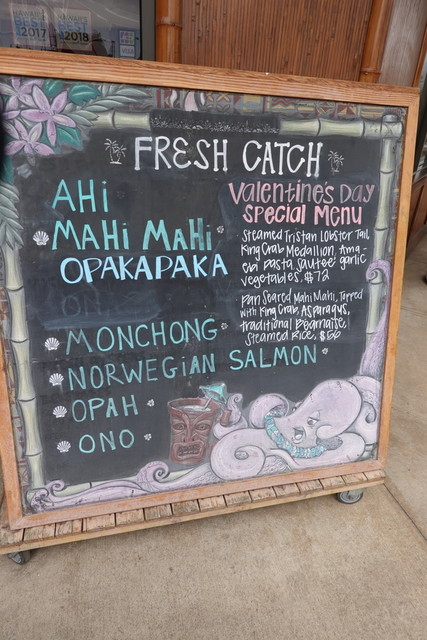 HAWAII'S
BEST
2017
HAWAII'S
BEST
2018
VISA
FRESH CATCH
AHi
MAHi MAHi
OPAKAPAKA
MONCHONG
NORWEGiAN SALMON
OPAH
ONO
Valentine's Day
Special Menu
Steamed Tristan Lobster Tail,
King Crab Medallion, Ama-
ebi pasta, Sautéed garlic
vegetables. $72
Pan Seared Mahi Mahi, Topped
with King Crab, Asparagus,
traditional Bearnaise,
Steamed Rice, $56